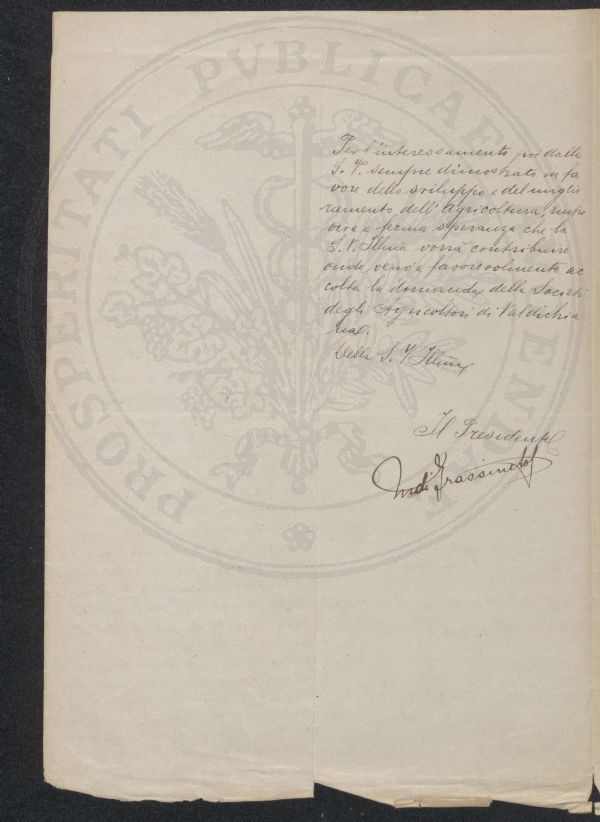 PROSPERITATI PVBLICAE
Per l'interessamento poi dalla
S. V. sempre dimostrato in fa
vore dello sviluppo e del miglio
ramento dell'Agricoltura,
viva e ferma speranza che la
S. V. Illma vorrà contribuire
onde venga favorevolmente ac
colta la domanda della Società
degli Agricoltori di Valdichia
na.
Della S. V. Illma
Il Presidente